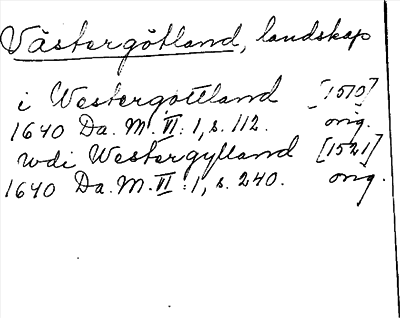 Västergötland, landskap
i Westergottland [1510]
1640 Da. M. VI: 1, s. 112. orig.
wdi Westergylland [1521]
1640 Da. M. VI: 1, s. 240. orig.